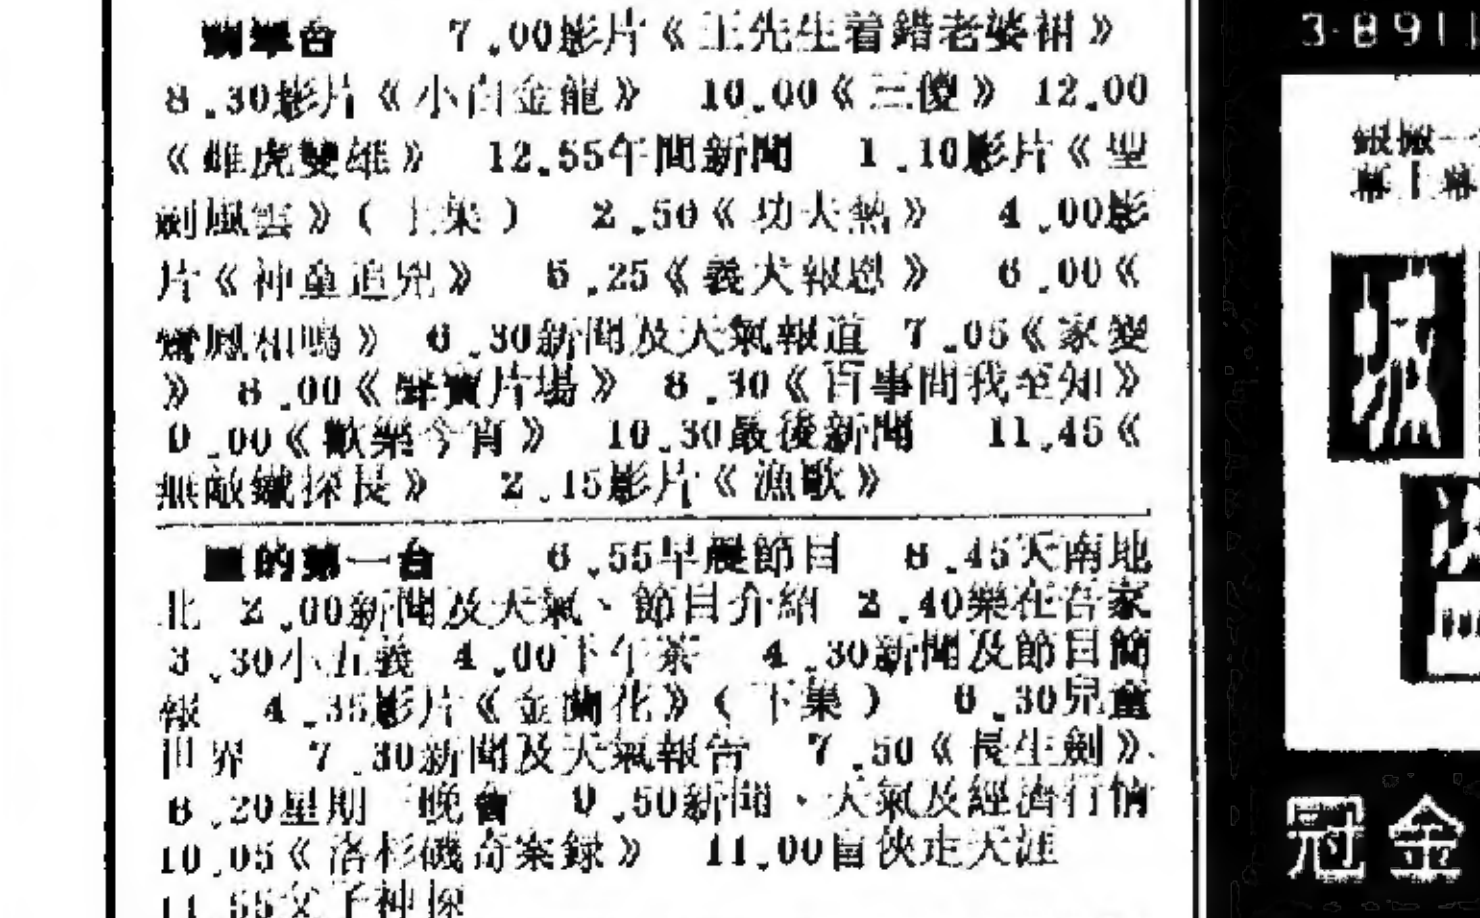 翡翠台 7.00影片《王先生着錯老婆裙》
8.30影片《小白金龍》 10.00《三傻》 12.00
《雌虎雙雄》 12.55午間新聞 1.10影片《聖
劍風雲》(上集) 2.50《功夫熱》 4.00影
片《神童追兇》 5.25《義犬報恩》 6.00《
鸞鳳和鳴》 6.30新聞及天氣報道 7.05《家變
》 8.00《聲寶片場》 8.30《百事問我至知》
9.00《歡樂今宵》 10.30最後新聞 11.45《
無敵鐵探長》 2.15影片《漁歌》
麗的第一台 6.55早晨節目 8.45天南地
北 2.00新聞及天氣、節目介紹 2.40樂在吾家
3.30小五義 4.00下午茶 4.30新聞及節目簡
報 4.35影片《金蘭花》(下集) 6.30兒童
世界 7.30新聞及天氣報告 7.50《長生劍》
8.20星期一晚會 9.50新聞、天氣及經濟行情
10.05《洛杉磯奇案録》 11.00盲俠走天涯
11.55父子神探
3-891
冠金